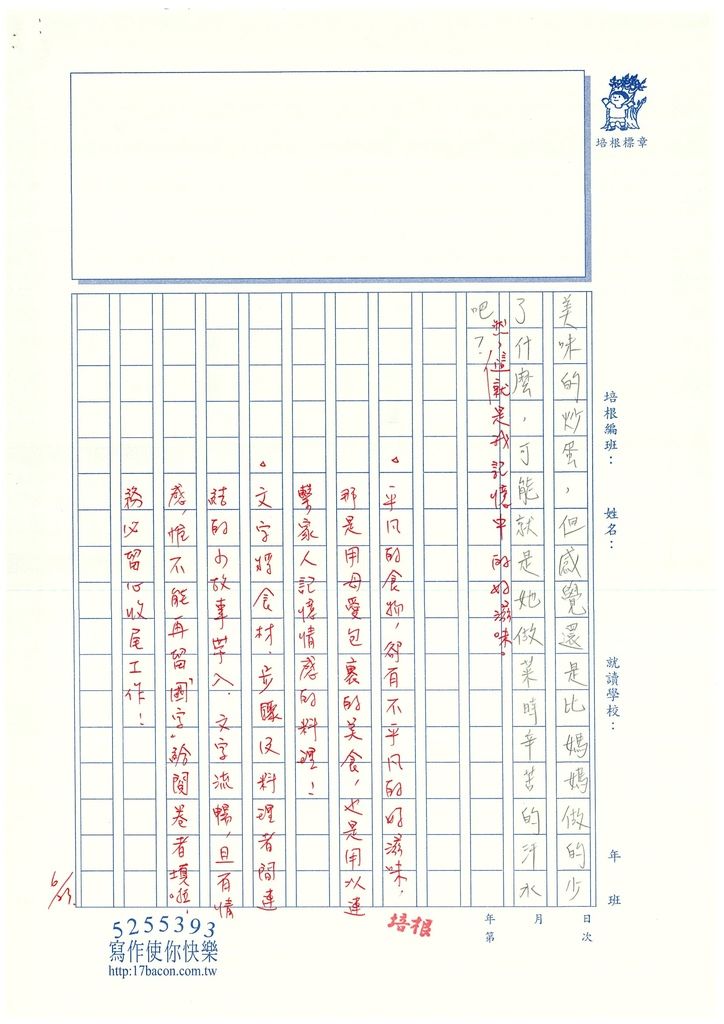 培根標章
培根編班：
姓名：
就讀學校：
年
班
美味的炒蛋，但感覺還是比媽媽做的少
了什麼，可能就是她做菜時辛苦的汗水
吧？
然，這就是我記憶中的好滋味。
▵平凡的食物，卻有不平凡的好滋味，
那是用母愛包裹的美食，也是用以連
繫家人記憶情感的料理！
▵文字將食材、步驟及料理者間連
結的小故事帶入．文字流暢，且有情
感，惟不能再留"國字"給閱卷者填啦！
務必留心收尾工作！
培根
年
月
日
第
次
5255393
寫作使你快樂
http:17bacon.com.tw